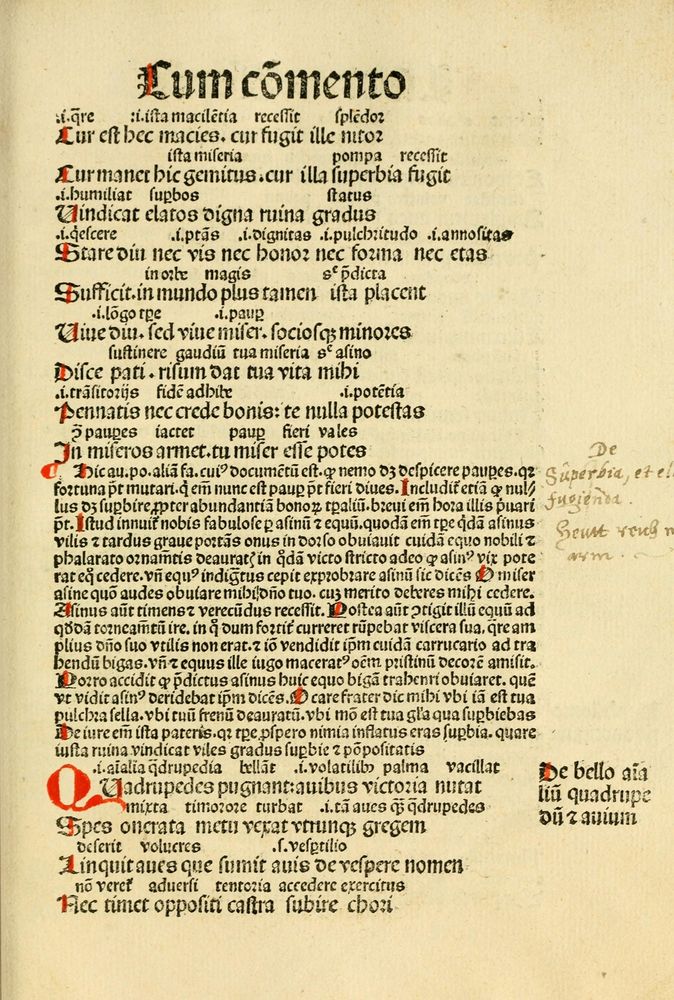 Cum cõmento
.i. q̃re .i. ista macilẽtia recessit splẽdor
Cur est hec macies. cur fugit ille nitor
ista miseria pompa recessit
Cur manet hic gemitus. cur illa superbia fugit
.i. humiliat suꝑbos status
Vindicat elatos digna ruina gradus
.i. q̃escere .i. ptãs .i. dignitas .i. pulchritudo .i. annositas
Stare diu nec vis nec honor nec forma nec etas
in orbe magis sᶜ p̃dicta
Sufficit. in mundo plus tamen ista placent
.i. lõgo tꝑe .i. pauꝑ
Viue diu. sed viue miser. sociosqꝫ minores
sustinere gaudiũ tua miseria sᶜ asino
Disce pati. risum dat tua vita mihi
.i. trãsitorijs fidẽ adhibe .i. potẽtia
Pennatis nec crede bonis: te nulla potestas
ꝙ̃ pauꝑes iactet pauꝑ fieri vales
In miseros armet. tu miser esse potes
Hic au. po. aliã fa. cuiꝰ documẽtũ est. ꝙ nemo dꝫ despicere pauꝑes. qꝛ
fortuna p̃t mutari. ꝙ em̃ nunc est pauꝑ p̃t fieri diues. Includit᷑ etiã ꝙ nul/
lus dꝫ suꝑbire ꝓpter abundantiã bonoꝝ tꝑaliũ. breui em̃ hora illis p̃uari
p̃t. Istud innuit᷑ nobis fabulose ꝑ asinũ ⁊ equũ. quodã em̃ tꝑe q̃dã asinus
vilis ⁊ tardus graue portãs onus in dorso obuiauit cuidã equo nobili ⁊
phalarato ornamẽtis deauratꝭ in q̃dã victo stricto adeo ꝙ asinꝰ vix pote
rat eq̃ cedere. vñ equꝰ indigñtus cepit exprobrare asinũ sic dicẽs O miser
asine quõ audes obuiare mihi dño tuo. cuꝫ merito deberes mihi cedere.
Asinus aũt timens ⁊ verecũdus recessit. Postea aũt ꝯtigit illũ equũ ad
qͦddã torneamẽtũ ire. in q̃ dum fortit᷑ curreret rũpebat viscera sua. q̃re am
plius dño suo vtilis non erat. ⁊ iõ vendidit ip̃m cuidã carrucario ad tra
hendũ bigas. vñ ⁊ equus ille iugo maceratꝰ oẽm pristinũ decorẽ amisit.
Porro accidit ꝙ p̃dictus asinus huic equo bigã trahenti obuiaret. quẽ
vt vidit asinꝰ deridebat ip̃m dicẽs. O care frater dic mihi vbi iã est tua
pulchra sella. vbi tuũ frenũ deauratũ. vbi mõ est tua glĩa qua suꝑbiebas
De iure em̃ ista pateris. qꝛ tꝑe ꝓspero nimia inflatus eras suꝑbia. quare
iusta ruina vindicat viles gradus suꝑbie ⁊ põpositatis
.i. aĩalia q̃drupedia bellãt .i. volatilibꝰ palma vacillat
Quadrupedes pugnant: auibus victoria nutat
mixta timorore turbat .i. tã aues qͣꝫ q̃drupedes
Spes onerata metu vexat vtrunqꝫ gregem
deserit volucres .s. vesꝑtilio
Linquit aues que sumit auis de vespere nomen
nõ veret᷑ aduersi tentoria accedere exercitus
Nec timet oppositi castra subire chori
De
Sũperbia, et el
fugienda.
De bello aĩa
liũ quadrupe
dũ ⁊ auium